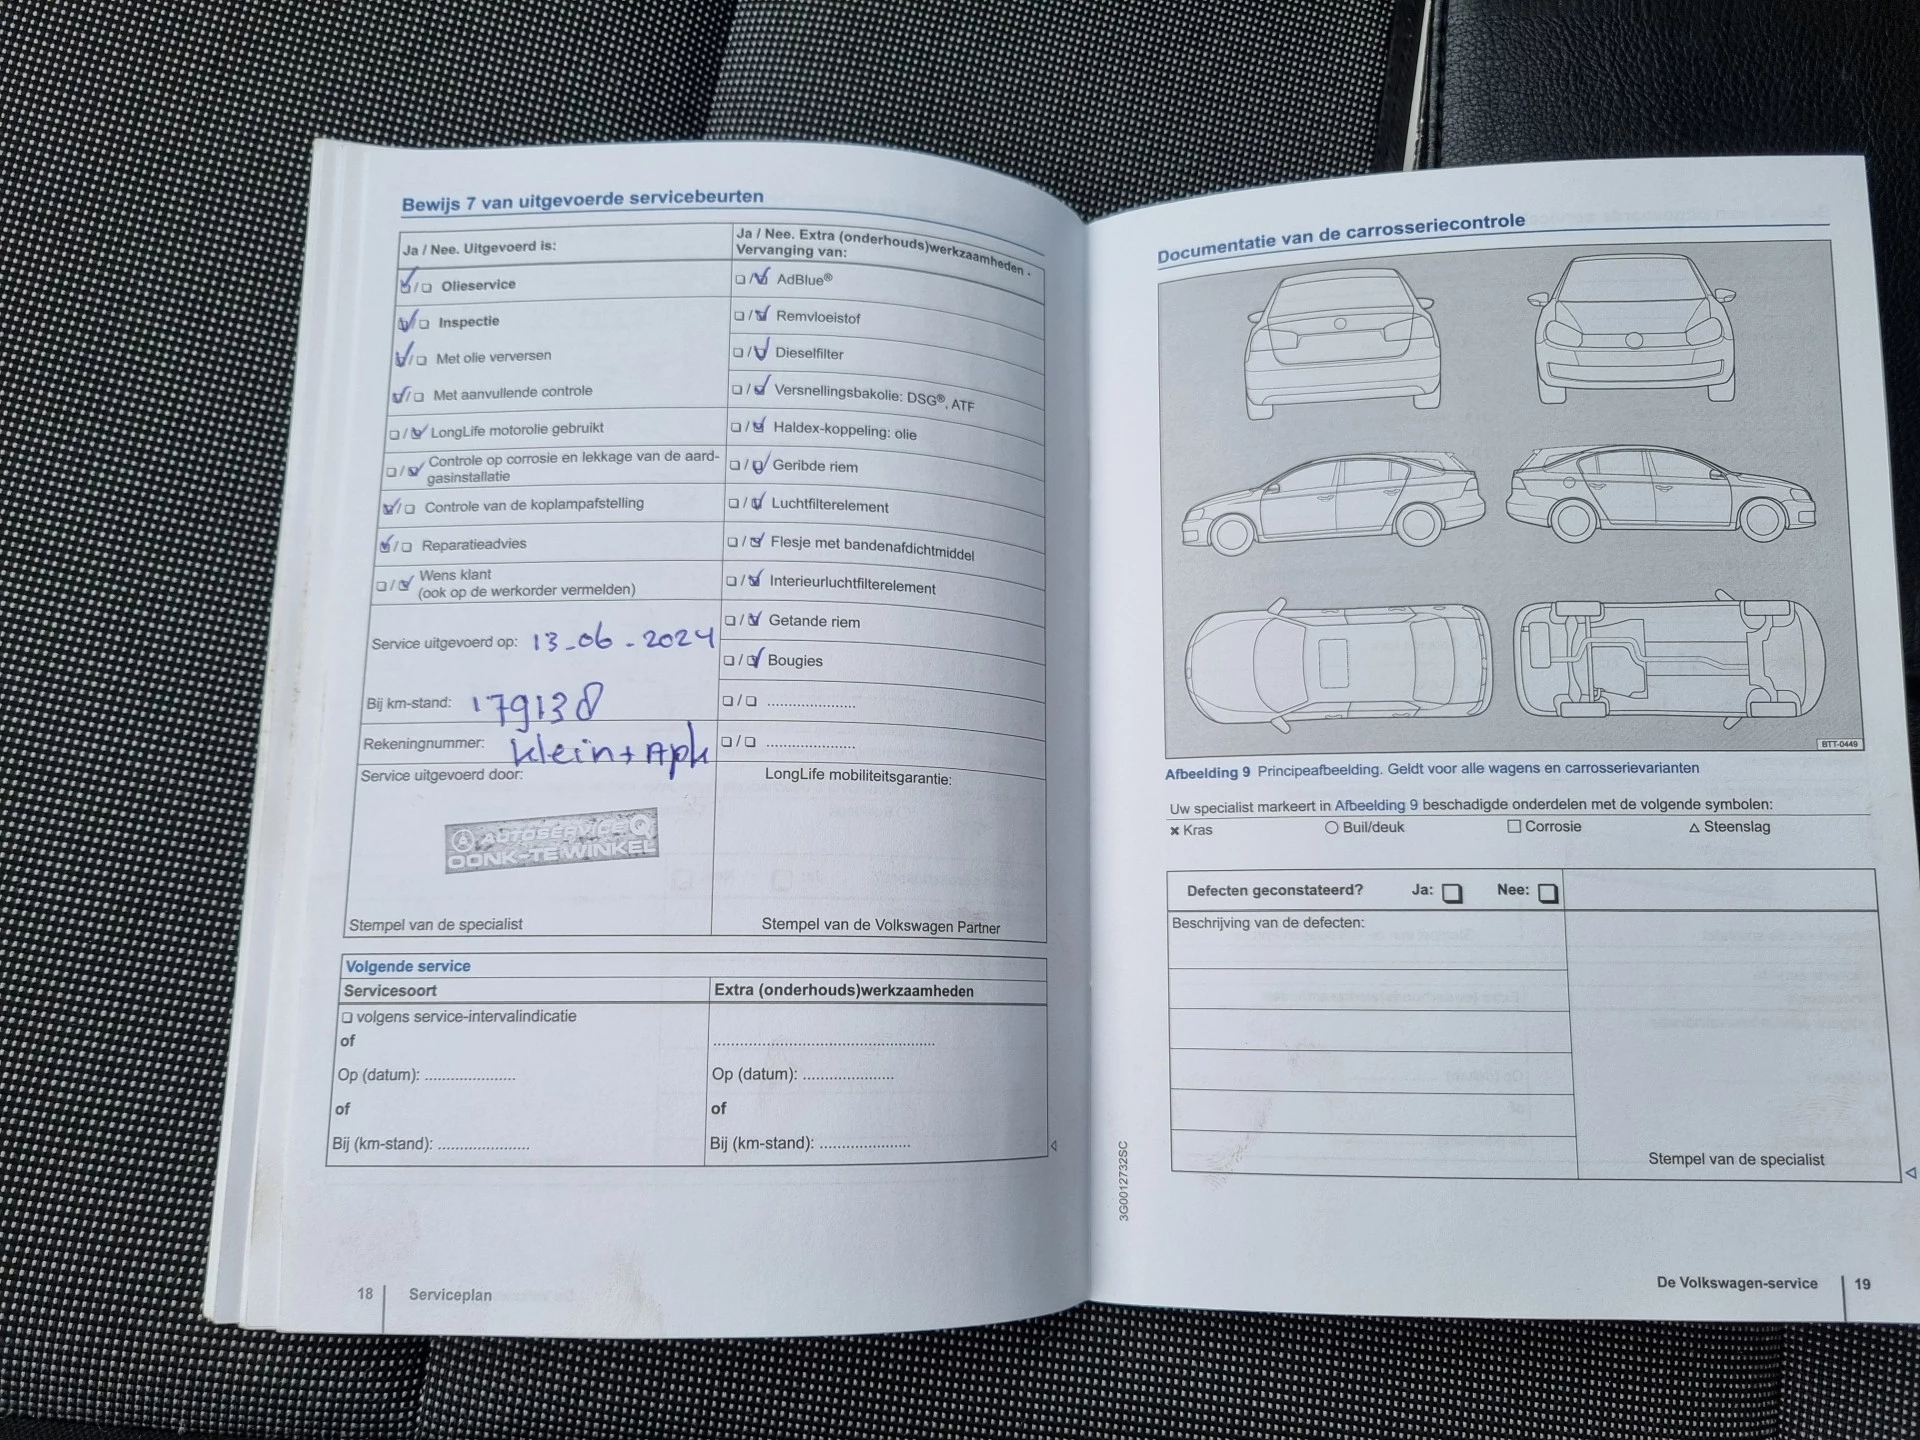 Bewijs 7 van uitgevoerde servicebeurten
Ja / Nee. Uitgevoerd is:
Olieservice
Inspectie
Met olie verversen
Met aanvullende controle
LongLife motorolie gebruikt
Controle op corrosie en lekkage van de aard-
gasinstallatie
Controle van de koplampafstelling
Reparatieadvies
Wens klant
(ook op de werkorder vermelden)
Service uitgevoerd op: 13-06-2024
Bij km-stand: 179138
Rekeningnummer: klein + Apk
Service uitgevoerd door:
AUTOSERVICE
OONK-TE WINKEL
Stempel van de specialist
Ja / Nee. Extra (onderhouds)werkzaamheden -
Vervanging van:
AdBlue®
Remvloeistof
Dieselfilter
Versnellingsbakolie: DSG®, ATF
Haldex-koppeling: olie
Geribde riem
Luchtfilterelement
Flesje met bandenafdichtmiddel
Interieurluchtfilterelement
Getande riem
Bougies
LongLife mobiliteitsgarantie:
Stempel van de Volkswagen Partner
Volgende service
Servicesoort
volgens service-intervalindicatie
of
Op (datum): .....................
of
Bij (km-stand): .....................
Extra (onderhouds)werkzaamheden
Op (datum): .....................
of
Bij (km-stand): .....................
18 Serviceplan
Documentatie van de carrosseriecontrole
BTT-0449
Afbeelding 9 Principeafbeelding. Geldt voor alle wagens en carrosserievarianten
Uw specialist markeert in Afbeelding 9 beschadigde onderdelen met de volgende symbolen:
× Kras ○ Buil/deuk □ Corrosie △ Steenslag
Defecten geconstateerd? Ja: □ Nee: □
Beschrijving van de defecten:
Stempel van de specialist
3G0012732SC
De Volkswagen-service 19